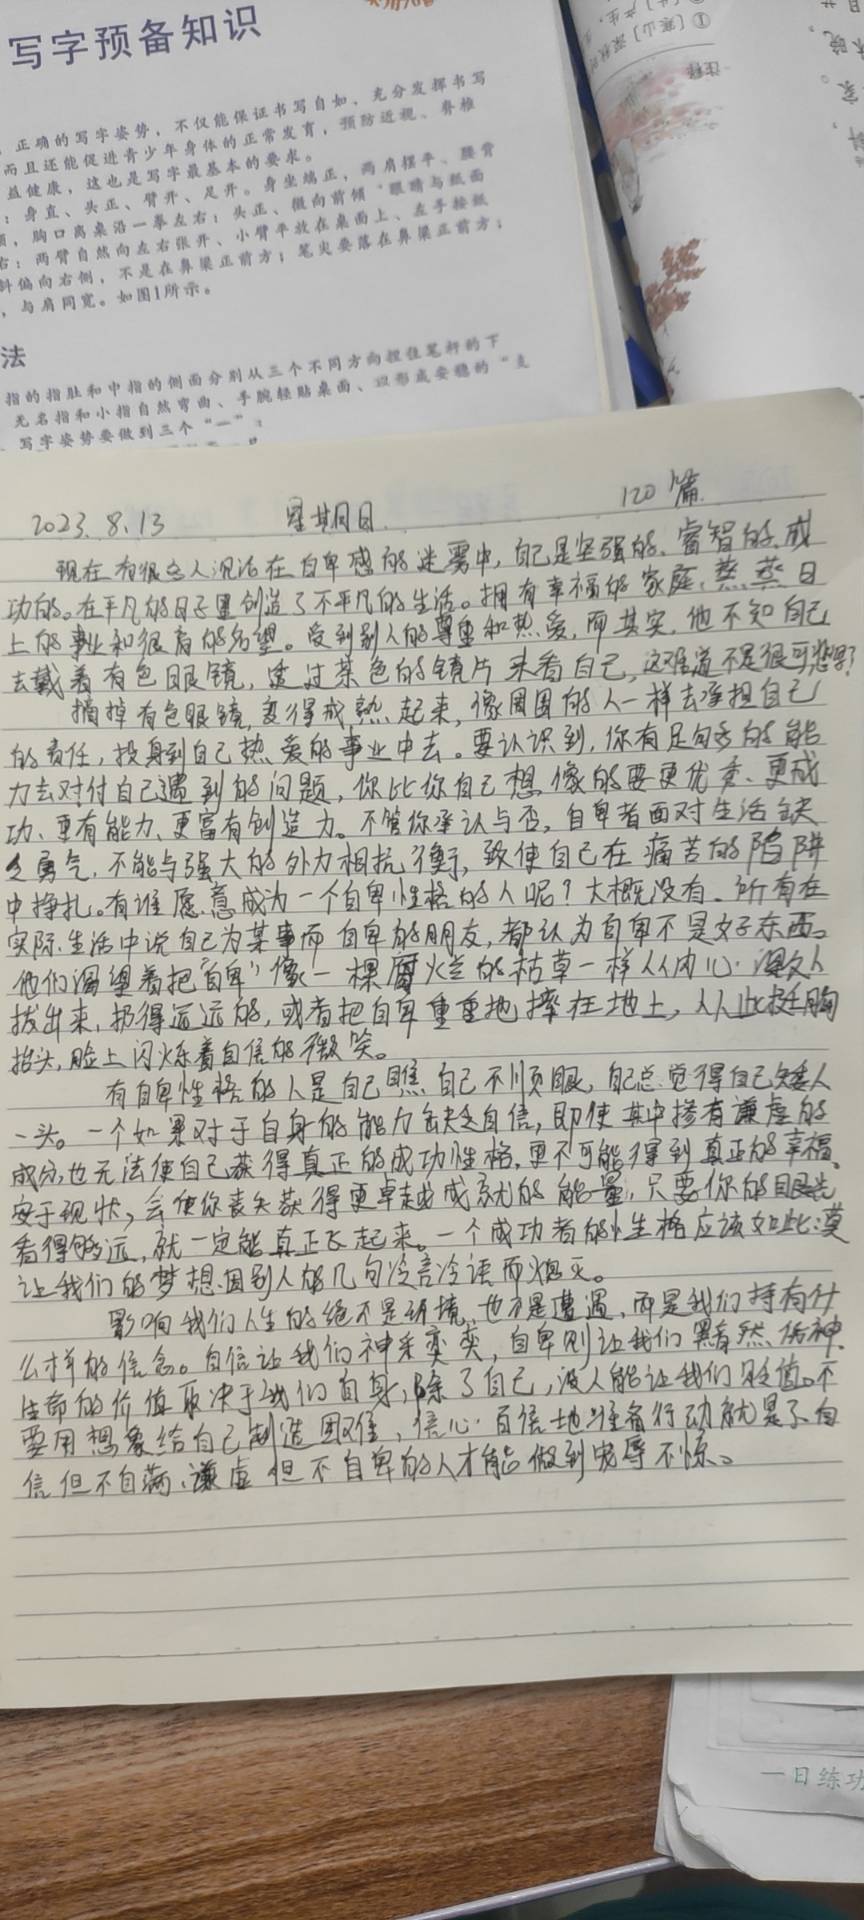 写字预备知识
正确的写字姿势，不仅能保证书写自如、充分发挥书写
而且还能促进青少年身体的正常发育，预防近视、脊椎
益健康，这也是写字最基本的要求。
：身直、头正、臂开、足开。身坐端正，两肩摆平、腰背
，胸口离桌沿一拳左右；头正、微向前倾，眼睛与纸面
右；两臂自然向左右张开、小臂平放在桌面上、左手按纸
斜偏向右侧，不是在鼻梁正前方；笔尖要落在鼻梁正前方；
，与肩同宽。如图1所示。
法
指的指肚和中指的侧面分别从三个不同方向捏住笔杆的下
无名指和小指自然弯曲、手腕轻贴桌面、以形成安稳的“支
写字姿势要做到三个“一”：
注释
2023.8.13 星期日 120篇
现在有很多人沉活在自卑感的迷雾中，自己是坚强的、睿智的、成
功的。在平凡的日子里创造了不平凡的生活。拥有幸福的家庭、蒸蒸日
上的事业和很高的名望。受到别人的尊重和热爱，而其实，他不知自己
去戴着有色眼镜，透过茶色的镜片来看自己，这难道不是很可悲？
摘掉有色眼镜，变得成熟起来，像周围的人一样去承担自己
的责任，投身到自己热爱的事业中去。要认识到，你有足够的能
力去对付自己遇到的问题，你比你自己想像的要更优秀、更成
功、更有能力、更富有创造力。不管你承认与否，自卑者面对生活缺
乏勇气，不能与强大的外力相抗衡，致使自己在痛苦的陷阱
中挣扎。有谁愿意成为一个自卑性格的人呢？大概没有。所有在
实际生活中说自己为某事而自卑的朋友，都认为自卑不是好东西。
他们渴望着把“自卑”像一棵腐烂的枯草一样从内心深处
拔出来，扔得远远的，或者把自卑重重地摔在地上，从此挺胸
抬头，脸上闪烁着自信的微笑。
有自卑性格的人是自己瞧自己不顺眼，自己总觉得自己矮人
一头。一个如果对于自身的能力缺乏自信，即使其中掺有谦虚的
成分，也无法使自己获得真正的成功性格，更不可能得到真正的幸福、
安于现状，会使你丧失获得更卓越成就的能量，只要你的眼光
看得够远，就一定能真正飞起来。一个成功者的性格应该如此：莫
让我们的梦想因别人的几句冷言冷语而熄灭。
影响我们人生的绝不是环境，也不是遭遇，而是我们持有什
么样的信念。自信让我们神采奕奕，自卑则让我们黯然伤神。
生命的价值取决于我们自身，除了自己，没人能让我们贬值。不
要用想象给自己制造困难，信心百倍地准备行动就是了。自
信但不自满、谦虚但不自卑的人才能做到宠辱不惊。
一日练功